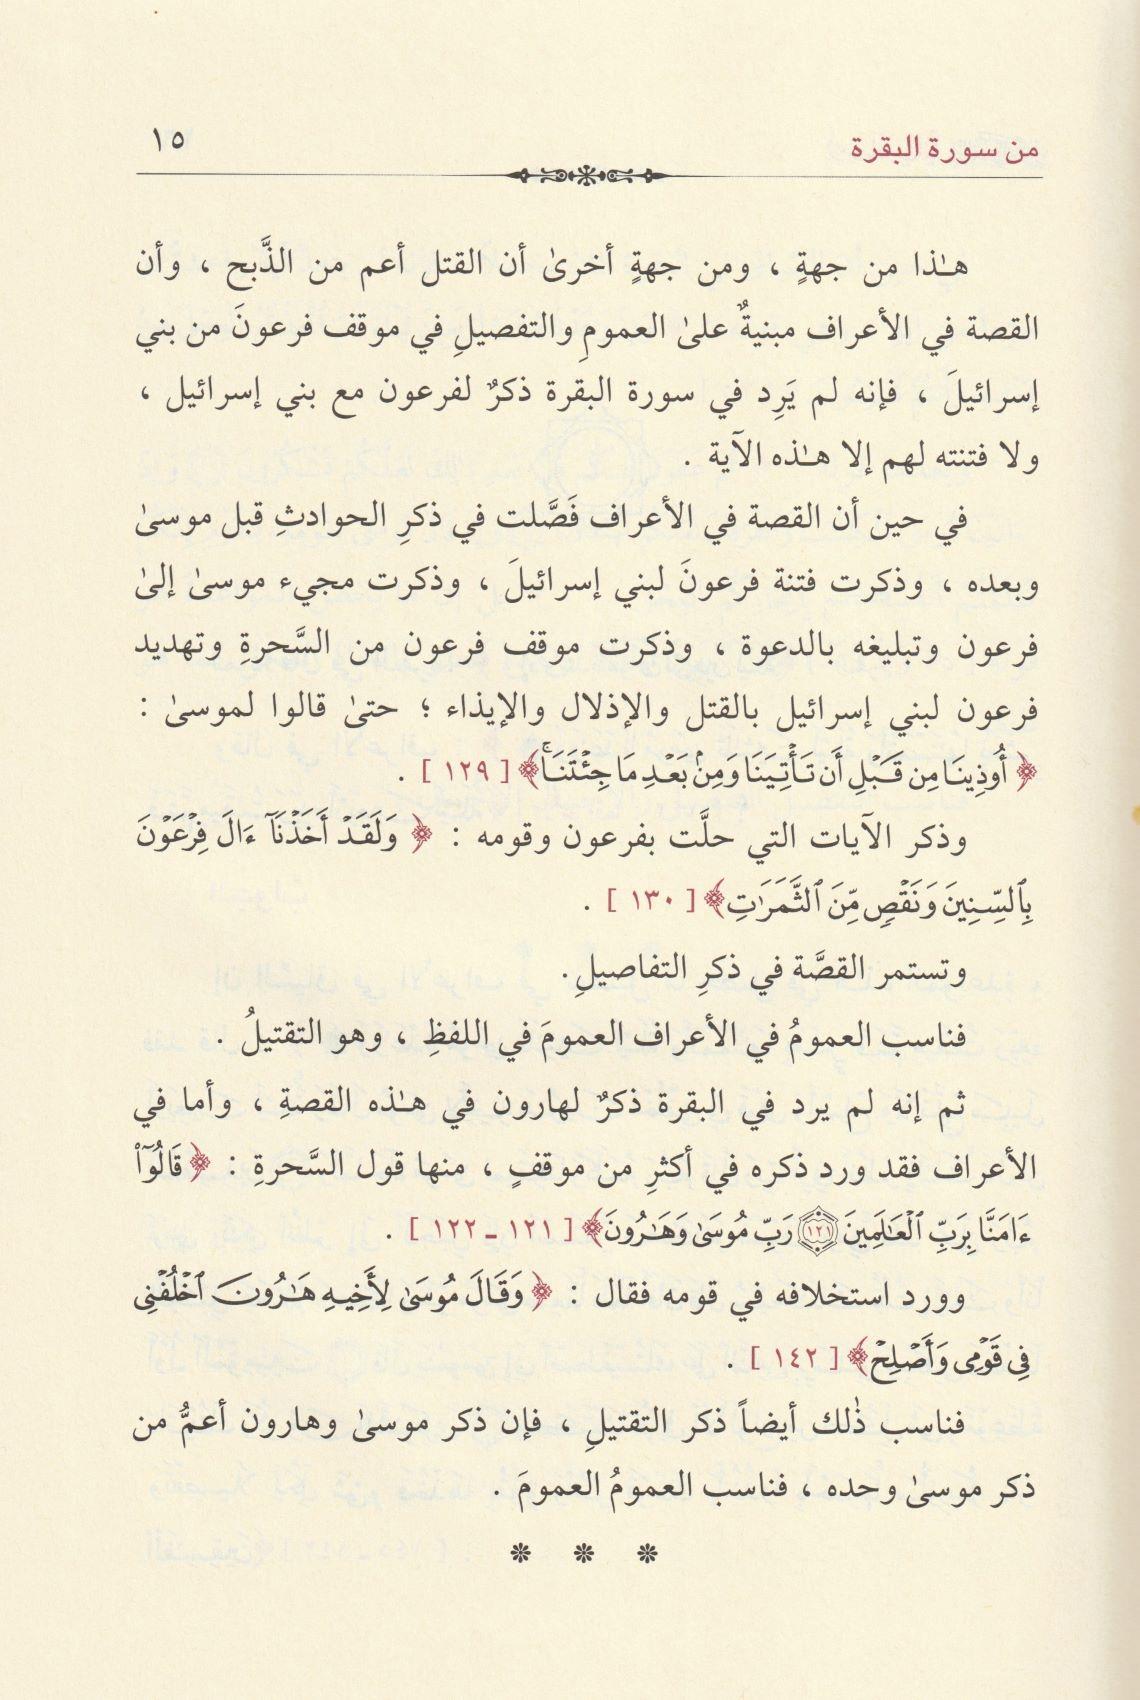 من سورة البقرة
١٥
هـٰذا من جهةٍ ، ومن جهةٍ أخرىٰ أن القتل أعم من الذَّبح ، وأن
القصة في الأعراف مبنيةٌ علىٰ العمومِ والتفصيلِ في موقف فرعونَ من بني
إسرائيلَ ، فإنه لم يَرِد في سورة البقرة ذكرٌ لفرعون مع بني إسرائيل ،
ولا فتنته لهم إلا هـٰذه الآية .
في حين أن القصة في الأعراف فَصَّلت في ذكرِ الحوادثِ قبل موسىٰ
وبعده ، وذكرت فتنة فرعونَ لبني إسرائيلَ ، وذكرت مجيء موسىٰ إلىٰ
فرعون وتبليغه بالدعوة ، وذكرت موقف فرعون من السَّحرةِ وتهديد
فرعون لبني إسرائيل بالقتل والإذلال والإيذاء ؛ حتىٰ قالوا لموسىٰ :
﴿ أُوذِينَا مِن قَبۡلِ أَن تَأۡتِيَنَا وَمِنۢ بَعۡدِ مَا جِئۡتَنَاۚ﴾ [ ١٢٩ ] .
وذكر الآيات التي حلَّت بفرعون وقومه : ﴿ وَلَقَدۡ أَخَذۡنَآ ءَالَ فِرۡعَوۡنَ
بِٱلسِّنِينَ وَنَقۡصٖ مِّنَ ٱلثَّمَرَٰتِ﴾ [ ١٣٠ ] .
وتستمر القصَّة في ذكرِ التفاصيلِ.
فناسب العمومُ في الأعراف العمومَ في اللفظِ ، وهو التقتيلُ .
ثم إنه لم يرد في البقرة ذكرٌ لهارون في هـٰذه القصةِ ، وأما في
الأعراف فقد ورد ذكره في أكثرِ من موقفٍ ، منها قول السَّحرةِ : ﴿ قَالُوٓاْ
ءَامَنَّا بِرَبِّ ٱلۡعَٰلَمِينَ ١٢١ رَبِّ مُوسَىٰ وَهَٰرُونَ﴾ [ ١٢١ ـ ١٢٢ ] .
وورد استخلافه في قومه فقال : ﴿ وَقَالَ مُوسَىٰ لِأَخِيهِ هَٰرُونَ ٱخۡلُفۡنِي
فِي قَوۡمِي وَأَصۡلِحۡ﴾ [ ١٤٢ ] .
فناسب ذٰلك أيضاً ذكر التقتيلِ ، فإن ذكر موسىٰ وهارون أعمُّ من
ذكر موسىٰ وحده ، فناسب العمومُ العمومَ .
* * *